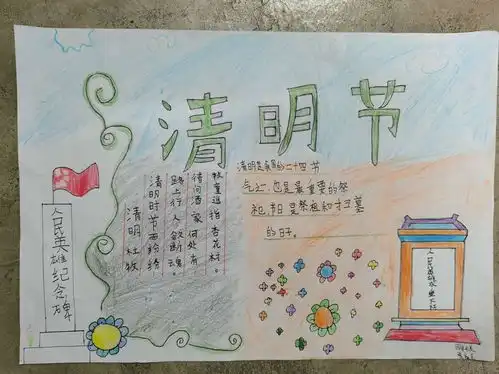 清明节
清明 杜牧
清明时节雨纷纷
路上行人欲断魂。
借问酒家何处有
牧童遥指杏花村。
清明是我国的二十四节
气之一,也是最重要的祭
祀节日是祭祖和扫墓
的日子。
人民英雄纪念碑
人民英雄永垂不朽